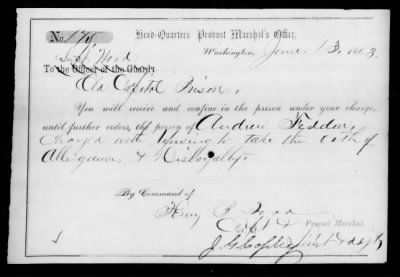 Head-Quarters Provost Marshal's Office,
No. 178
Washington, June 13, 1863.
Supt Wood
To the Officer of the Guard,
Old Capitol Prison,
You will receive and confine in the prison under your charge,
until further orders, the person of Andrew
charged with refusing to take the Oath of
Allegiance, & Disloyalty.
By Command of
Henry B. Todd
Capt & Provost Marshal.